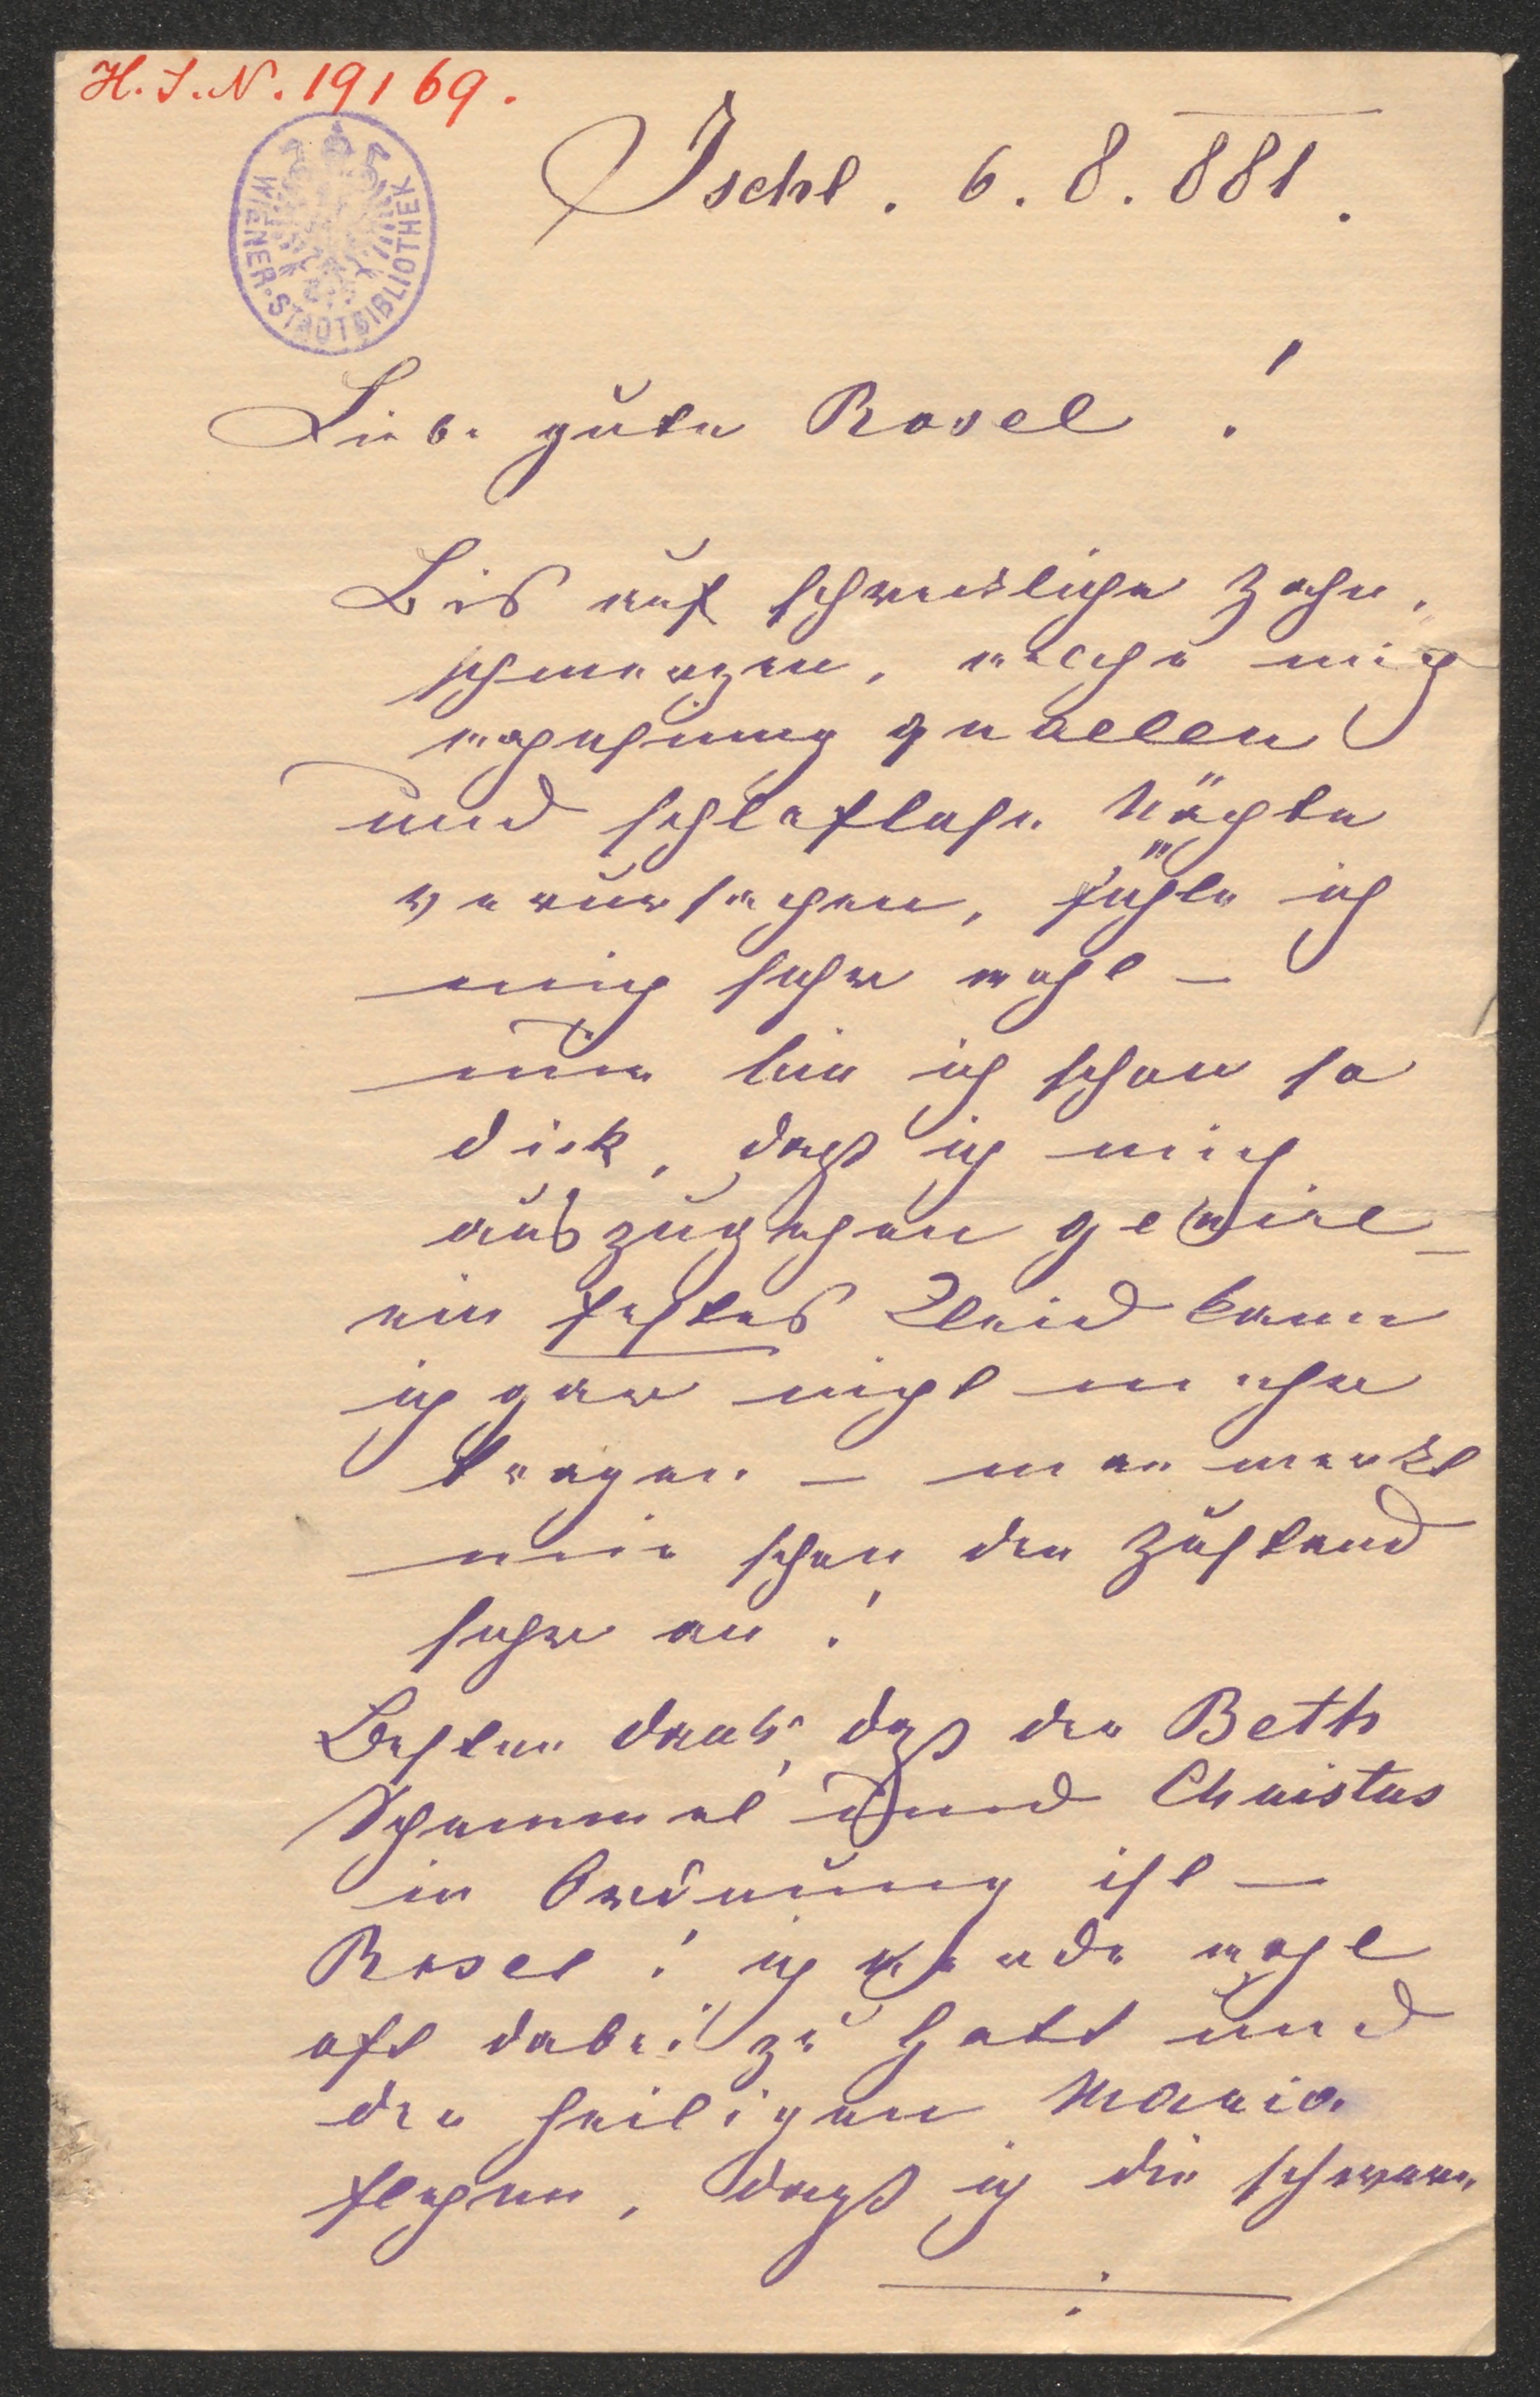 H. I. N. 19169.
WIENER · STADTBIBLIOTHEK
Ischl. 6. 8. 881.
Liebe gute Rosel!
Bis auf schreckliche Zahn-
schmerzen, welche mich
quaellen
und schlaflose Nächte
verursachen, fühle ich
mich sehr wohl –
nur bin ich schon so
dick, daß ich mich
auszugehen genire –
ein festes Kleid kann
ich gar nicht mehr
tragen – man merkt
mir schon den Zustand
sehr an!
Besten Dank, daß der Beth
Schemmel und Christus
in Ordnung ist –
Rosel! ich werde wohl
oft dabei zu Gott und
der heiligen Maria
flehen, daß ich die schwere